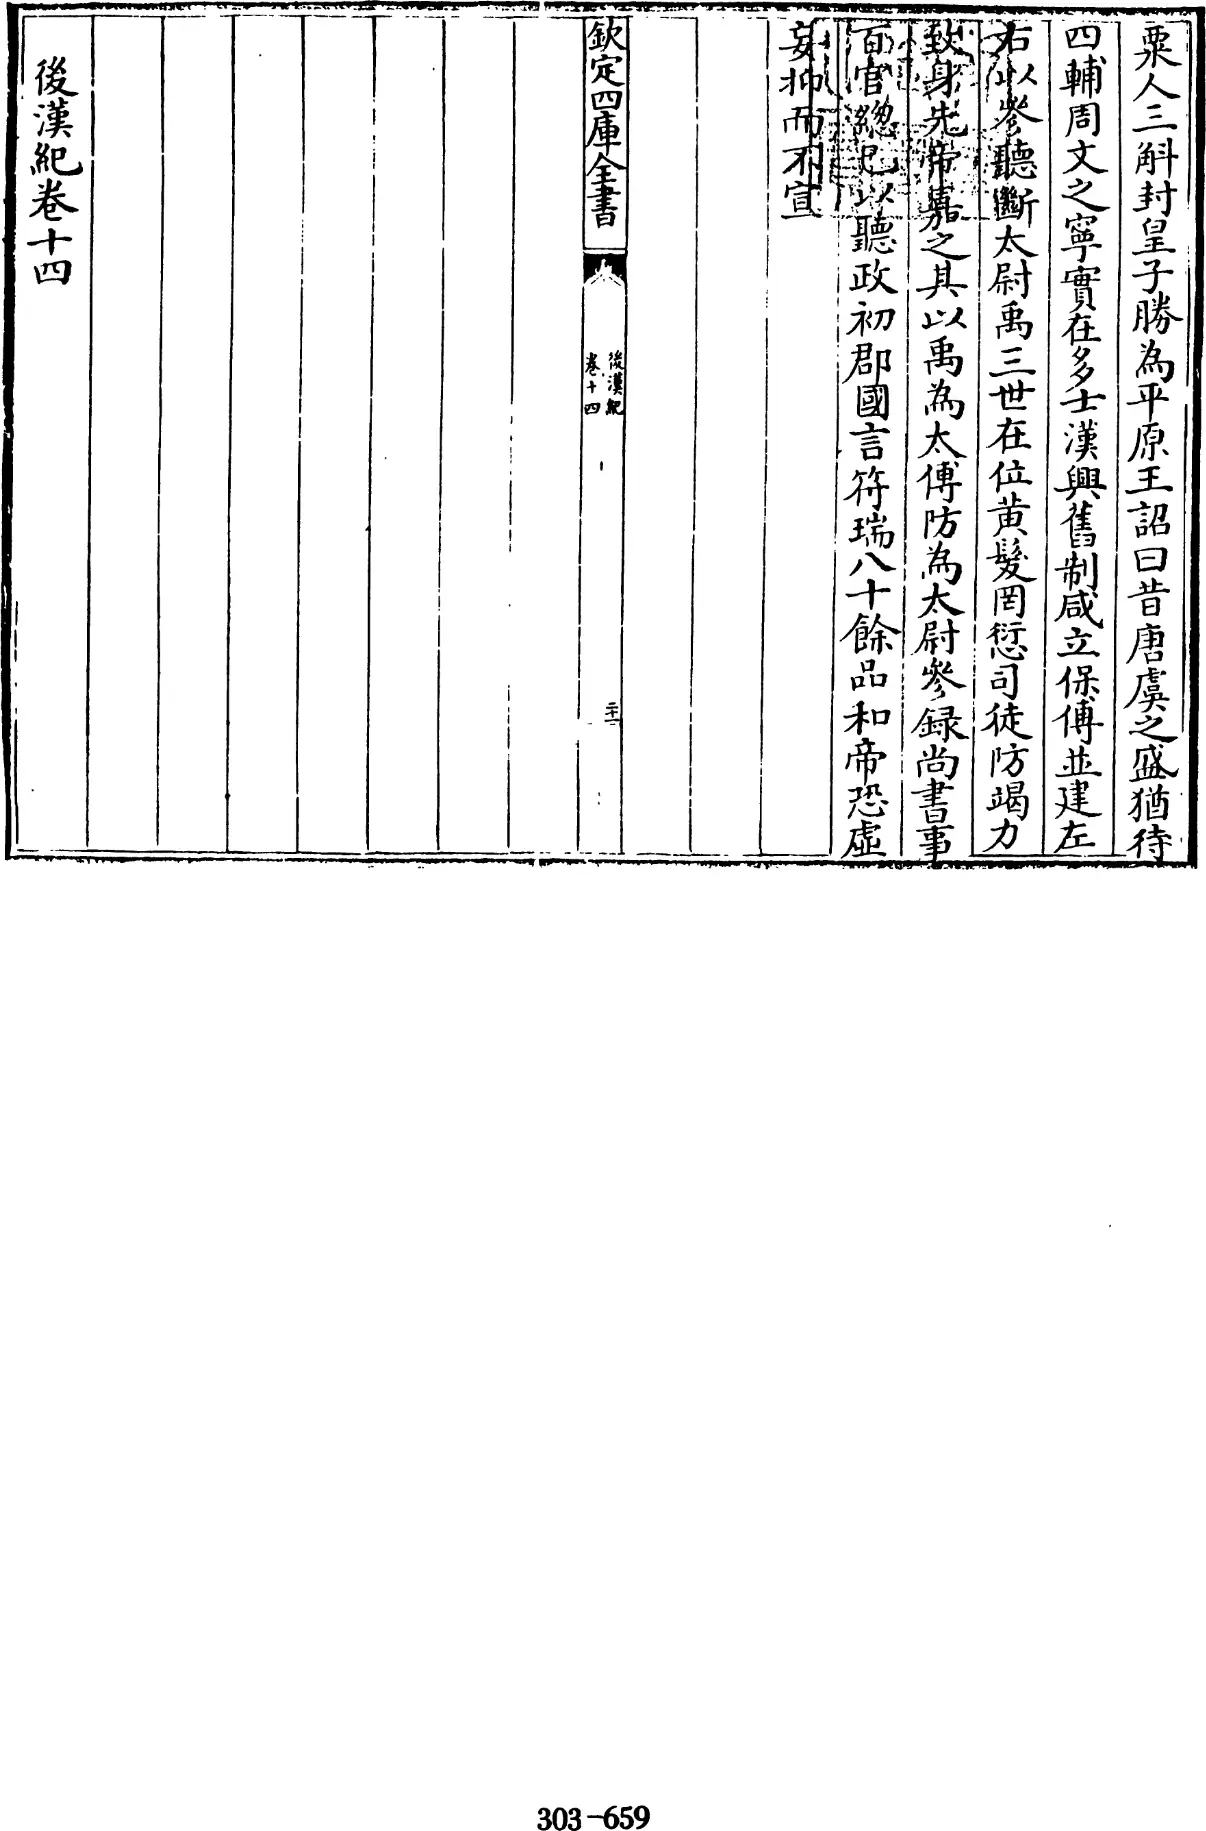 粟人三斛封皇子勝為平原王詔曰昔唐虞之盛猶待
四輔周文之寧實在多士漢興舊制咸立保傅並建左
右以參聽斷太尉禹三世在位黄髮罔愆司徒防竭力
致身先帝嘉之其以禹為太傅防為太尉參録尚書事
百官總己以聽政初郡國言符瑞八十餘品和帝恐虛
妄抑而不宣
欽定四庫全書
後漢紀
卷十四
二十一
後漢紀卷十四
303-659